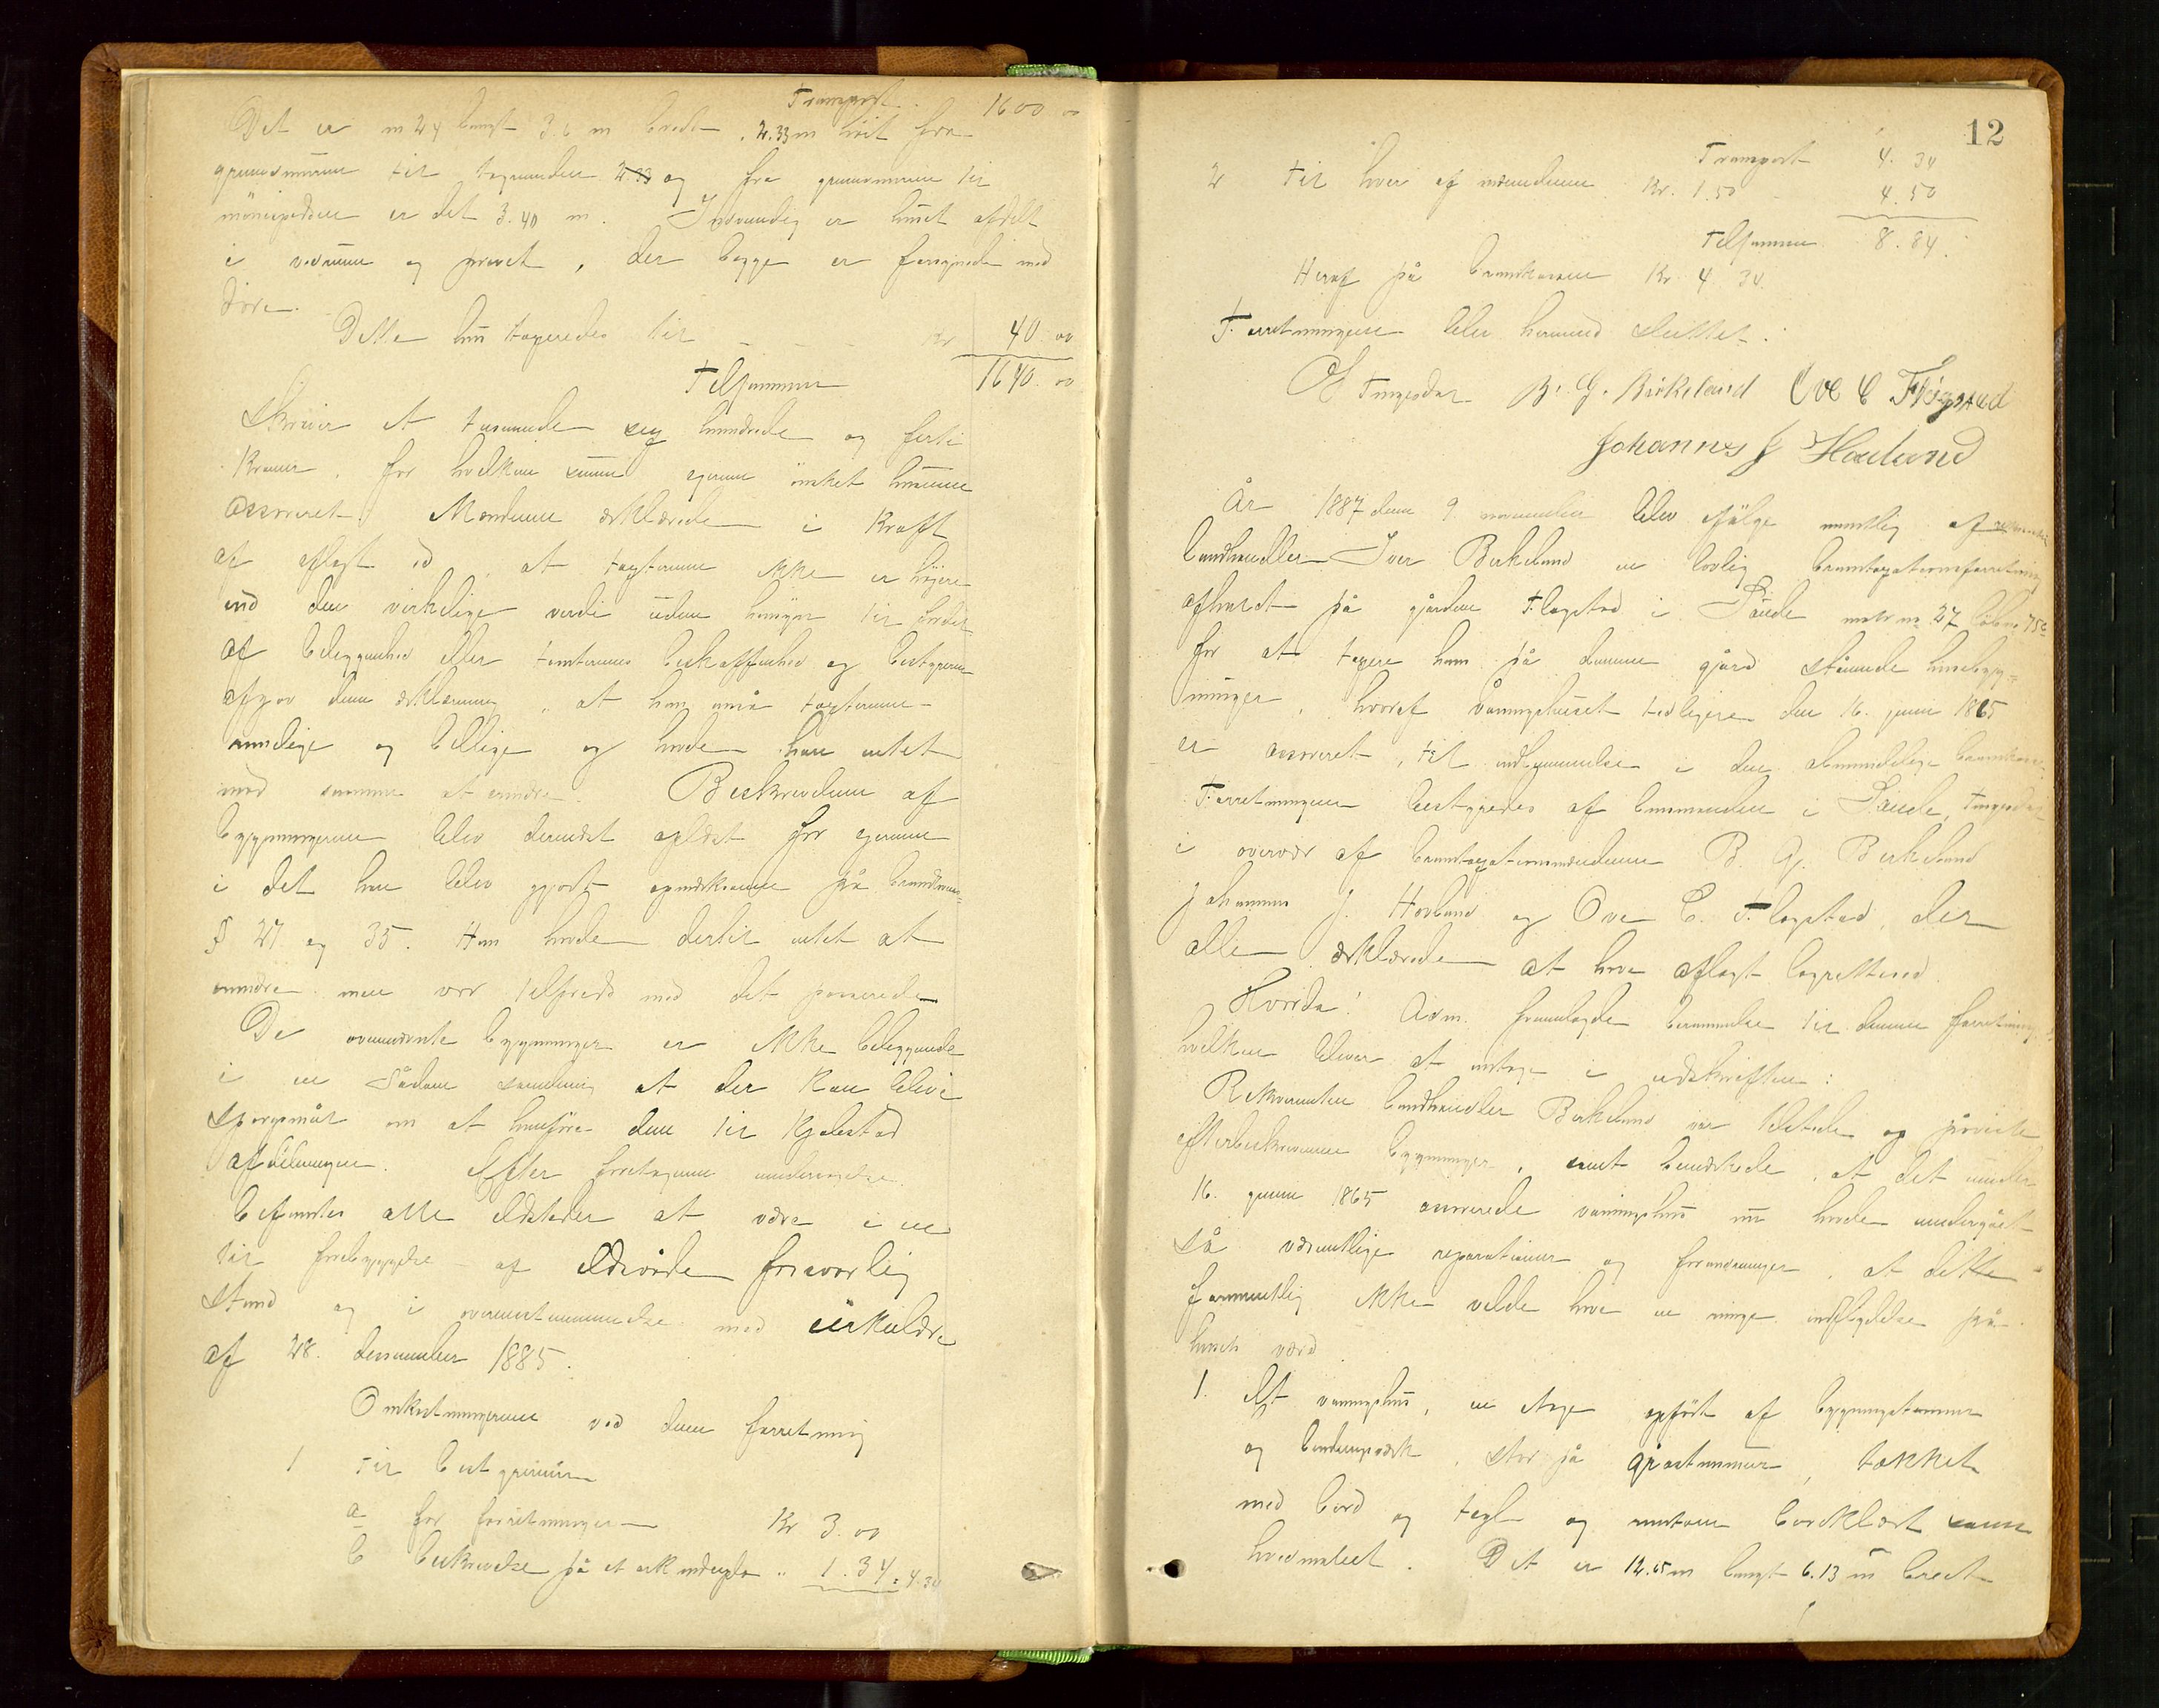 Transport 1600 00
Det er m 24 langt 3.6 m bredt, 2.33 m höit fra
grundmuren til tagrenden 2.33 og fra grundmuren til
möneipedden er det 3.40 m. Indvendig er huset afdelt
i vedrum og privet, der begge er forsynede med
döre.
Dette hus taxeredes til - - - kr 40.00
Tilsammen 1640.00
Skriver et tusende sex hundrede og forti
Kroner, for hvilken sum eieren önsket husene
assureret. Mændene erklærede i Kraft
af aflagt ed, at taxterne ikke er höiere
end den virkelige verdi uden hensyn til fordel
af beliggenhed eller tomternes beskaffenhed og bestyreren
afgav den erklæring, at han anså taxterne
rimelige og billige og havde han intet
mod samme at erindre. Beskrivelsen af
bygningerne blev dernæst oplæst for eieren
i det han blev gjort opmærksom på brandlovens
§ 27 og 35. Han havde dertil intet at
erindre men var tilfreds med det passerede
De ovennævnte bygninger er ikke beliggende
i en sådan samling at der kan blive
spörgsmål om at henföre dem til Kjöbstad
afdelingen. Efter foretagen undersögelse
befandtes alle ildsteder at være i en
til forebyggelse af ildsvåde forsvarlig
stand og i overensstemmelse med cirkulære
af 28. desember 1885.
Omkostningerne ved denne forretning
1 til bestyreren
a for forretningen Kr 3.00
b beskrivelse på et ark " 1.34 = 4.34
12
Transport 4.34
2 til hver af mændene Kr. 1.50 4.50
Tilsammen 8.84
Heraf på brandkassen Kr. 4.34
Forretningen blev hermed sluttet.
B. G. Birkeland Ove C Fløgstad
Johannes J Hovland
År 1887 den 9 november blev ifölge mundtlig af
landhandler Iver Birkeland en lovlig branntaxationsforretning
afholdt på gården Flogstad i Saude matr no 27 löbeno 75c
for at taxere ham på denne gård stående husebyg-
ninger, hvoraf våningshuset tidligere den 16. juni 1865
er assureret, til indlemmelse i den almindelige brandkasse
Forretningen bestyredes af lensmanden i Saude,
i overvær af branntaxationsmændene B. G. Birkeland
Johannes J. Hovland og Ove C. Flogstad, der
alle erklærede at have aflagt lagrettesed.
Hvorda! Adm. fremlagde berammelse til denne forretning
hvilken bliver at indtage i udskriften:
Rekvirenten landhandler Birkeland var tilstede og påviste
efterbeskrevne bygninger, samt bemærkede, at det under
16. juni 1865 assurerede våningshus nu havde undergået
så væsentlige reparationer og forandringer, at dette
formentlig ikke vilde have en ringe indflydelse på
husets værd
1. Et våningshus, en etage opfört af bygningstömmer
og bindingsverk, står på gråstensmur, tækket
med bord og tegl og rundtom bordklædt samt
hvidmalet. Det er 12.65 m langt 6.13 m bredt